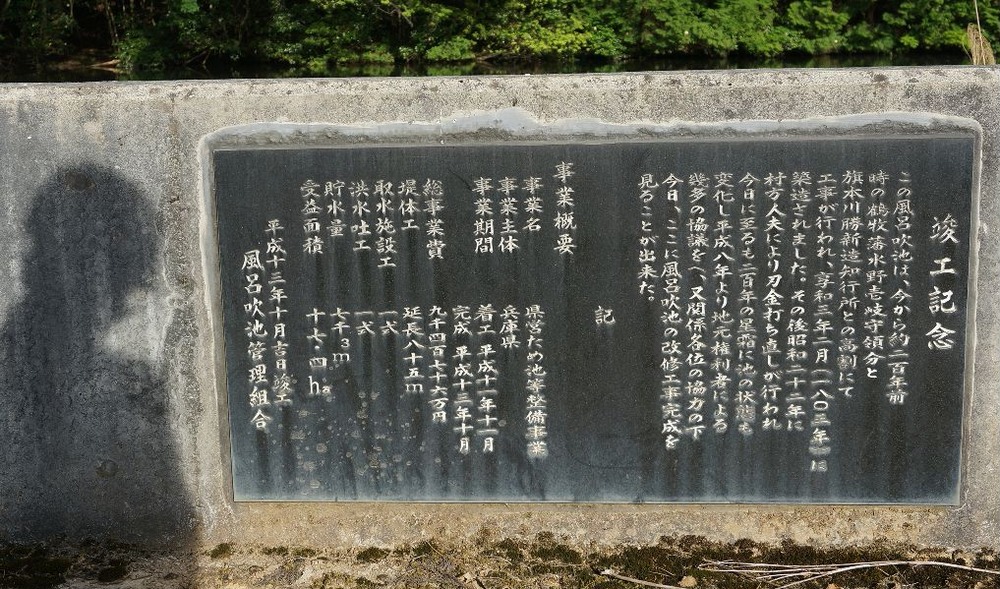 竣工記念
この風呂吹池は、今から約二百年前
時の鶴牧藩水野壱岐守領分と
旗本川勝新造知行所との高割にて
工事が行われ、享和三年二月(一八〇三年)に
築造されました。その後昭和二十二年に
村方人夫により刃金打ち直しが行われ
今日に至るも二百年の星霜に池の状態も
変化し平成八年より地元権利者による
幾多の協議をへ、又関係各位の協力の下
今日、ここに風呂吹池の改修工事完成を
見ることが出来た。
記
事業概要
事業名 県営ため池等整備事業
事業主体 兵庫県
事業期間 着工 平成十一年十一月
完成 平成十三年十月
総事業費 九千四百七十六万円
堤体工 延長八十五m
取水施設工 一式
洪水吐工 一式
貯水量 七千m3
受益面積 十六・四ha
平成十三年十月吉日竣工
風呂吹池管理組合